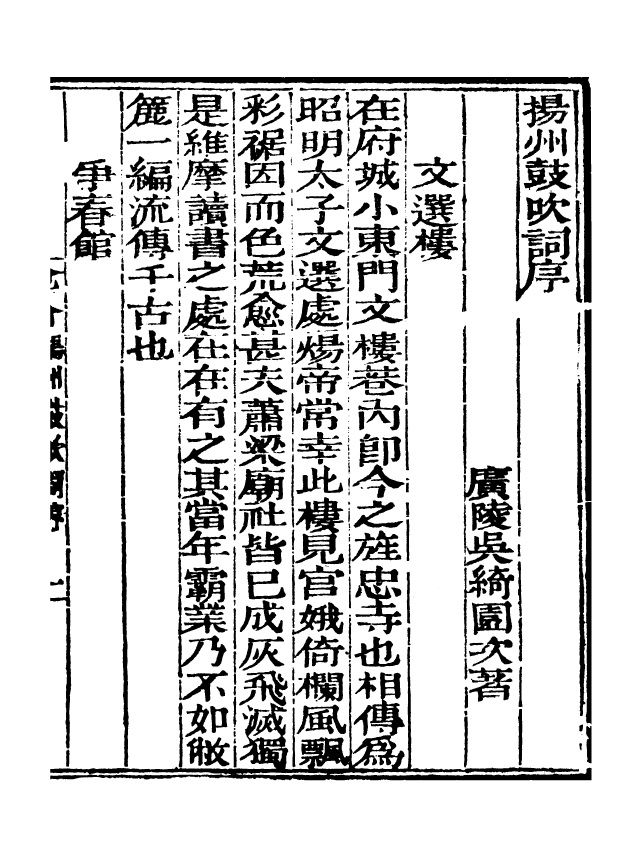 揚州鼓吹詞序
廣陵吳綺園次著
文選樓
在府城小東門文樓巷內卽今之旌忠寺也相傳爲
昭明太子文選處煬帝常幸此樓見宮娥倚欄風飄
彩裾因而色荒愈甚夫蕭梁廟社皆已成灰飛滅獨
是維摩讀書之處在在有之其當年霸業乃不如敝
簏一編流傳千古也
爭春館
揚州鼓吹詞序